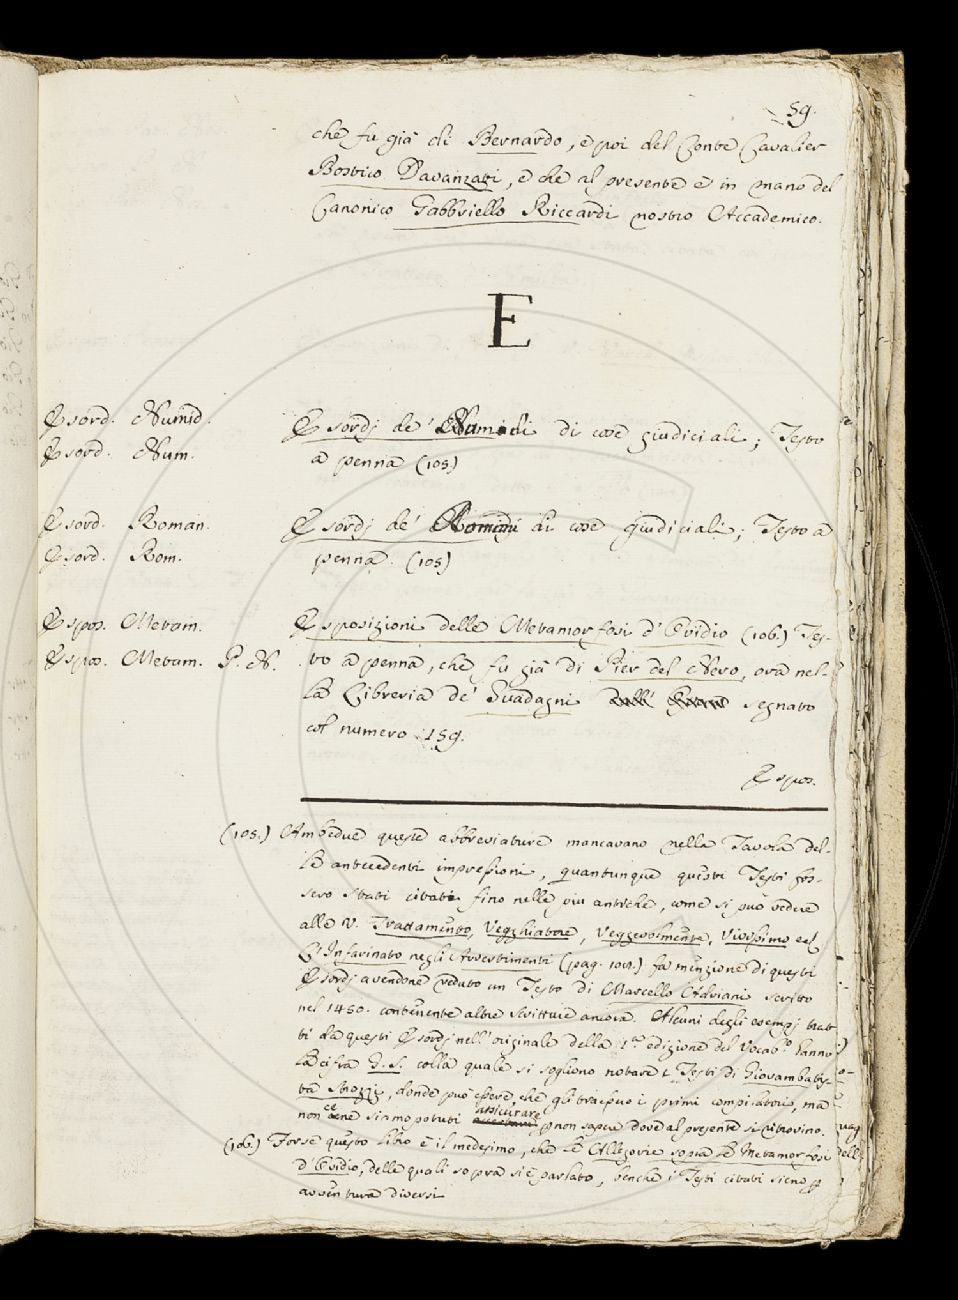 59.
che fu già di Bernardo, e poi del Conte Cavalier
Bostico Davanzati, e che al presente è in mano del
Canonico Gabbriello Riccardi nostro Accademico.
E
Esord. Numid. Esordj de' Numidi di cose giudiciali; Testo
Esord. Num. a penna (105)
Esord. Roman. Esordj de' Romani di cose giudiciali; Testo a
Esord. Rom. penna. (105)
Espos. Metam. Esposizioni delle Metamorfosi d'Ovidio (106.) Tes-
Espos. Metam. P. N. to a penna, che fu già di Pier del Nero, ora nel-
la Libreria de' Guadagni segnato
col numero 159.
Espos.
(105.) Ambedue queste abbreviature mancavano nella Tavola del-
le antecedenti impressioni, quantunque questi Testi fos-
sero stati citati fino nelle più antiche, come si può vedere
alle V. Trattamento, Vegghiatore, Veggevolmente, Vivisimo ed
L'Infarinato negli Avvertimenti (pag. ) fa menzione di questi
Esordj avendone veduto un Testo di Marcello Adriani scritto
nel 1450. contenente altre scritture ancora. Alcuni degli esempj trat-
ti da questi Esordj nell'originale della 1.ª edizione del Vocab.º hanno
la cifra G. S. colla quale si sogliono notare i Testi di Giovambatis-
ta Strozzi, donde può essere, che gli traesse i primi compilatori, ma
non ce ne siamo potuti assicurare p non sapere dove al presente si ritrovino.
(106.) Forse questo libro è il medesimo, che le Allegorie sopra le Metamorfosi
d'Ovidio, delle quali sopra si è parlato, benchè i Testi citati sieno p
avventura diversi